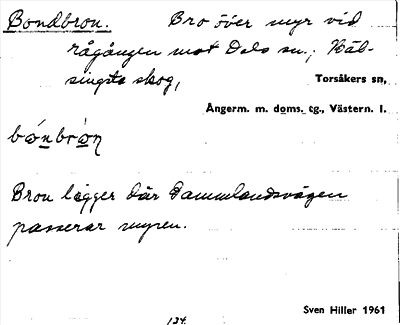 Bondbron. Bro över myr vid
rågången mot Dals sn.; Häl-
singsta skog,
Torsåkers sn,
Ångerm. m. doms. tg., Västern. l.
bónbròn
Bron ligger där Dammlandsvägen
passerar myren.
Sven Hiller 1961
134.